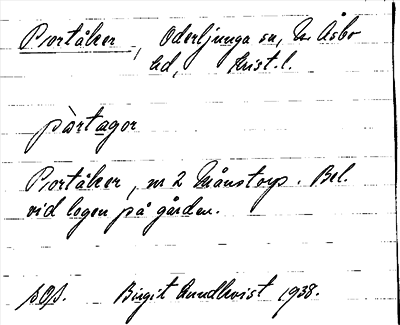 Portåker, Oderljunga sn, N. Åsbo
hd, Krist. l.
pàrtagor
Portåker, nr 2 Månstorp. Bel.
vid logen på gården.
Birgit Lundkvist 1938.